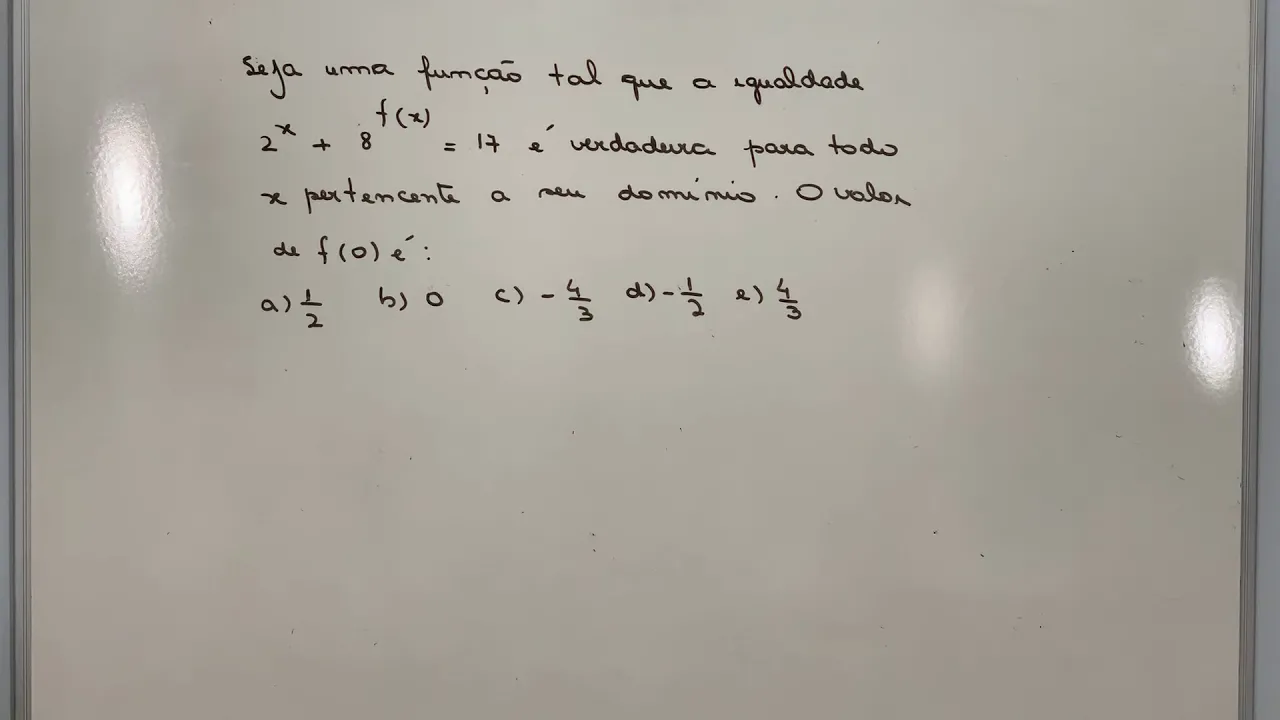 Seja uma função tal que a igualdade
2^x + 8^f(x) = 17 é verdadeira para todo
x pertencente a seu domínio. O valor
de f(0) é:
a) 1/2 b) 0 c) - 4/3 d) - 1/2 e) 4/3